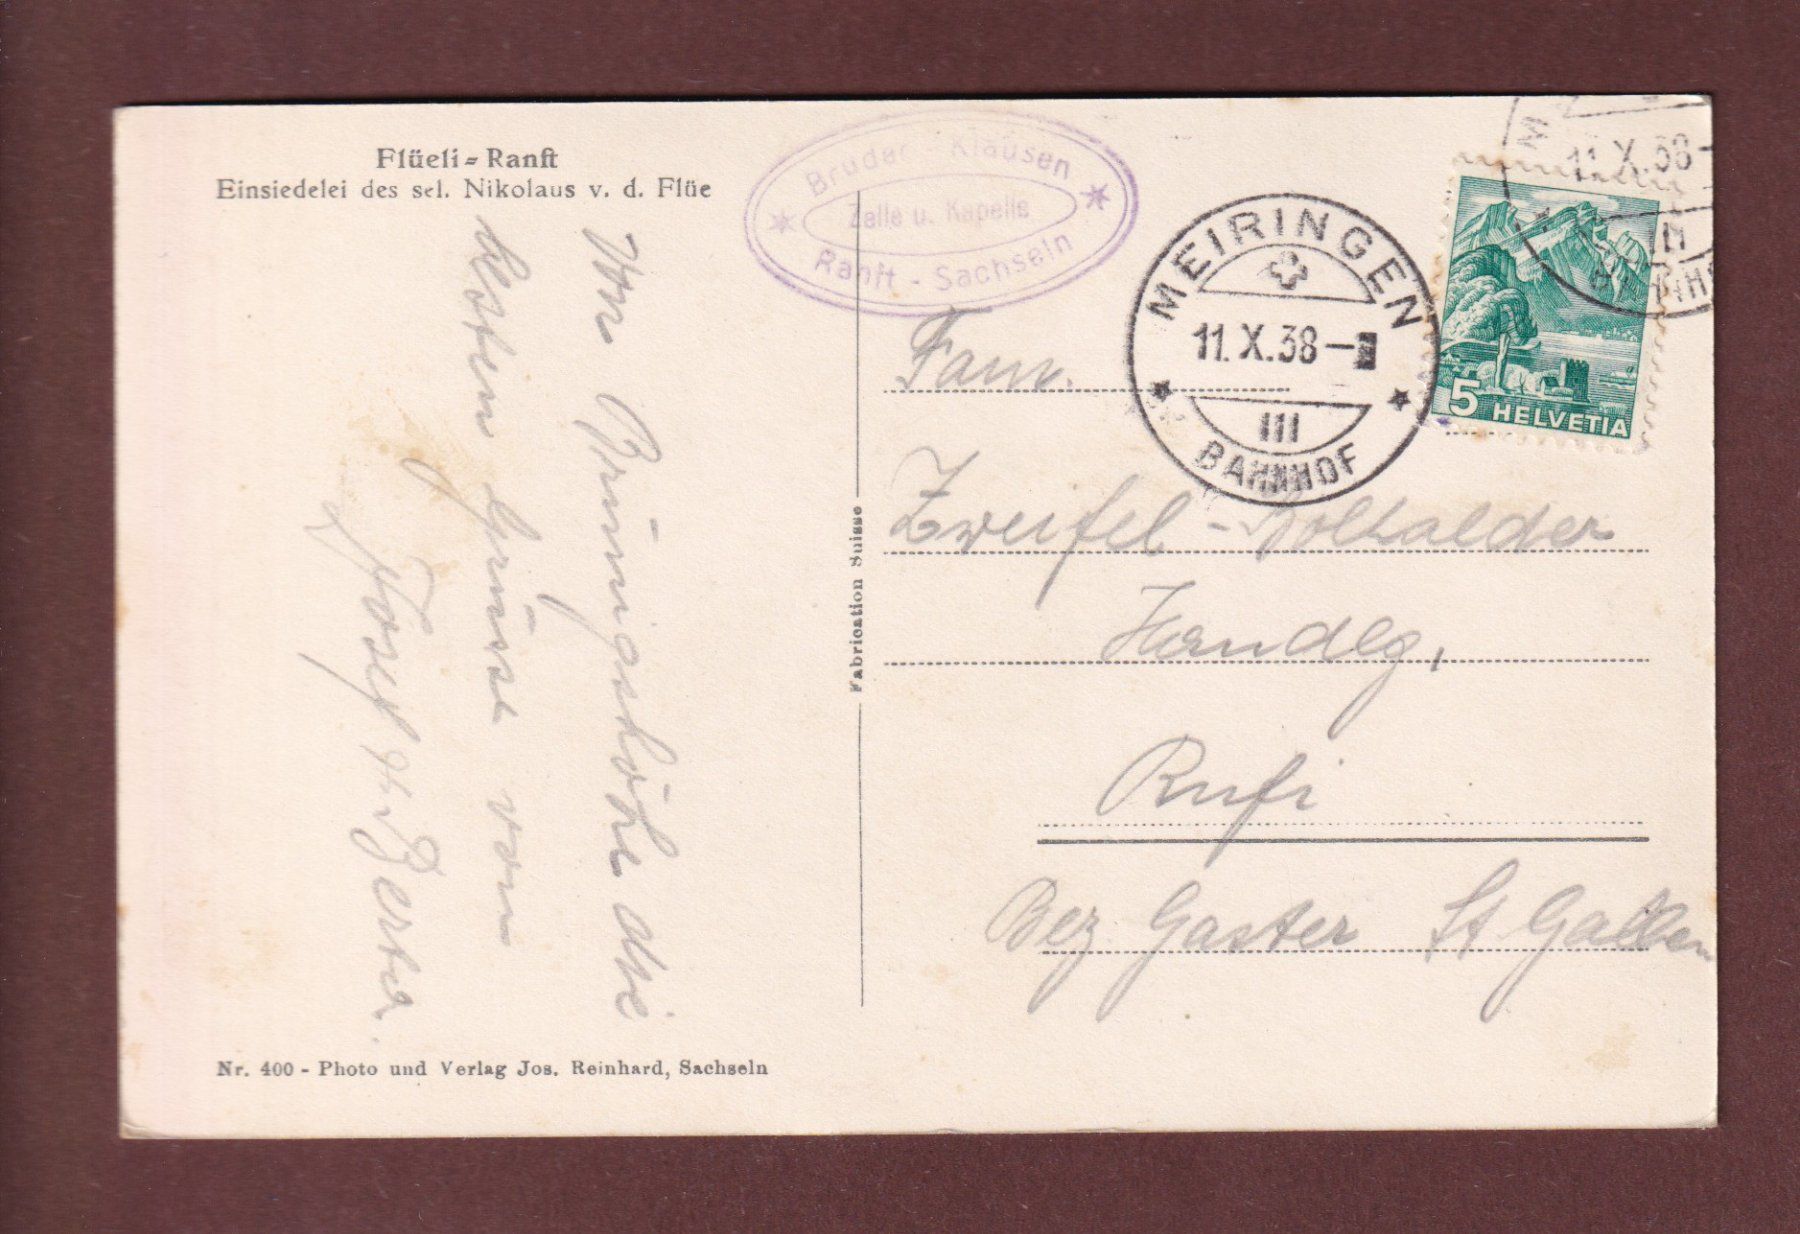 Flüeli-Ranft
Einsiedelei des sel. Nikolaus v. d. Flüe
Bruder Klausen
Zelle u. Kapelle
Ranft - Sachseln
MEIRINGEN
11.X.38-
III
BAHNHOF
11.X.38-
5 HELVETIA
Von Brünigshöhe die
besten Grüsse vom
Josef & Berta.
Fam.
Zweifel-
Handlg,
Rufi
Bez Gaster St Gallen
Fabrication Suisse
Nr. 400 - Photo und Verlag Jos. Reinhard, Sachseln